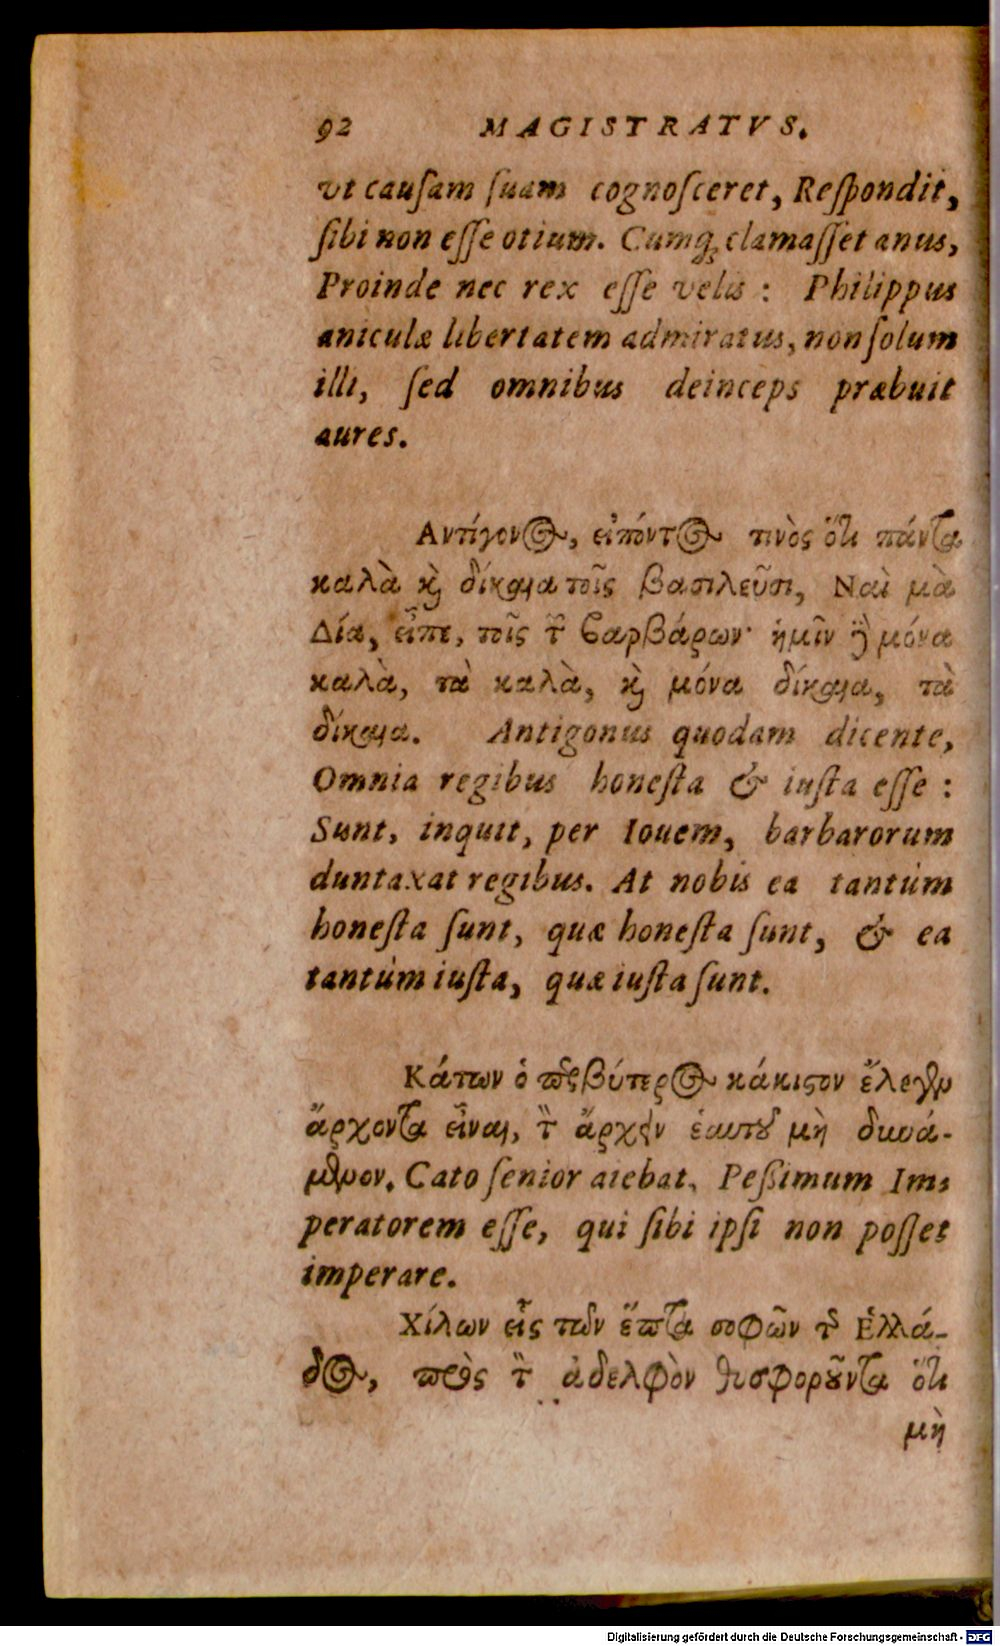 92 MAGISTRATVS.
vt cauſam ſuam cognoſceret, Reſpondit,
ſibi non eſſe otium. Cumq; clamaſſet anus,
Proinde nec rex eſſe velis : Philippus
aniculæ libertatem admiratus, non ſolum
illi, ſed omnibus deinceps præbuit
aures.
Αντίγονος, εἰπόντος τινὸς ὅτι πάντα
καλὰ κὶ δίκαια τοῖς βασιλεῦσι, Ναὶ μὰ
Δία, εἶπε, τοῖς τῶν βαρβάρων· ἡμῖν ἢ μόνα
καλὰ, τὰ καλὰ, κὶ μόνα δίκαια, τὰ
δίκαια. Antigonus quodam dicente,
Omnia regibus honeſta & iuſta eſſe :
Sunt, inquit, per Iouem, barbarorum
duntaxat regibus. At nobis ea tantùm
honeſta ſunt, quæ honeſta ſunt, & ea
tantùm iuſta, quæ iuſta ſunt.
Κάτων ὁ πρεσβύτερος κάκιςον ἔλεγεν
ἄρχοντα εἶναι, τὸν ἄρχειν ἑαυτοῦ μὴ δυνά-
μενον. Cato ſenior aiebat, Peßimum Im-
peratorem eſſe, qui ſibi ipſi non poſſet
imperare.
Χίλων εἷς τῶν ἕπτα σοφῶν τῆς Ἑλλά-
δος, πρὸς τὸν ἀδελφὸν δυσφοροῦντα ὅτι
μὴ
Digitalisierung gefördert durch die Deutsche Forschungsgemeinschaft - DFG